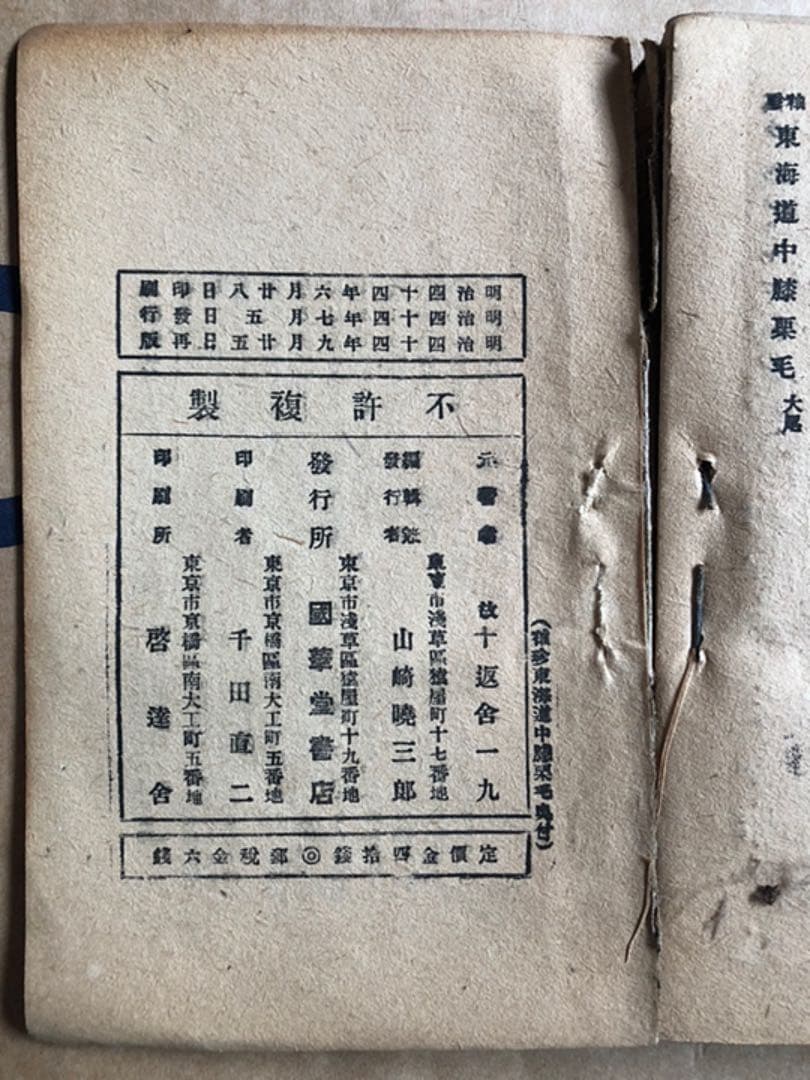 袖珍 東海道中膝栗毛 大尾
明治四十四年六月廿八日印刷
明治四十四年七月五日發行
明治四十四年九月廿五日再版
不許複製
(袖珍東海道中膝栗毛奧付)
元著者 故十返舍一九
編輯兼發行者
東京市淺草區猿屋町十七番地
山崎曉三郎
發行所
東京市淺草區猿屋町十九番地
國華堂書店
印刷者
東京市京橋區南大工町五番地
千田直二
印刷所
東京市京橋區南大工町五番地
啓達舍
定價金四拾錢◎郵稅金六錢